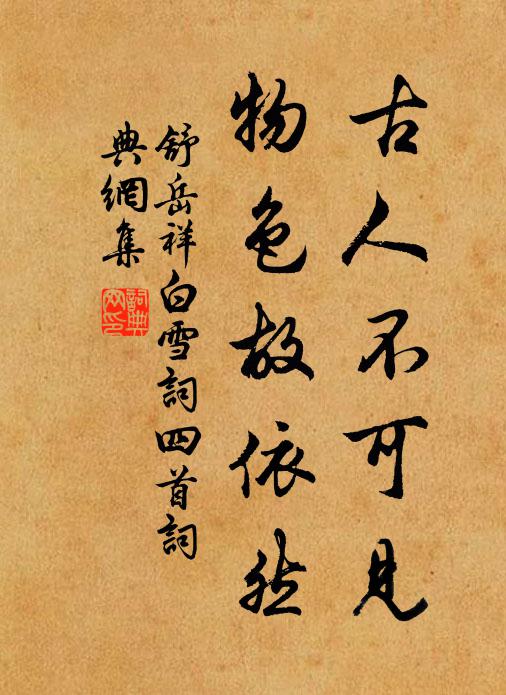 古人不可見
物色故依然
舒岳祥白雪詞四首詞
典網集
詞典
网印